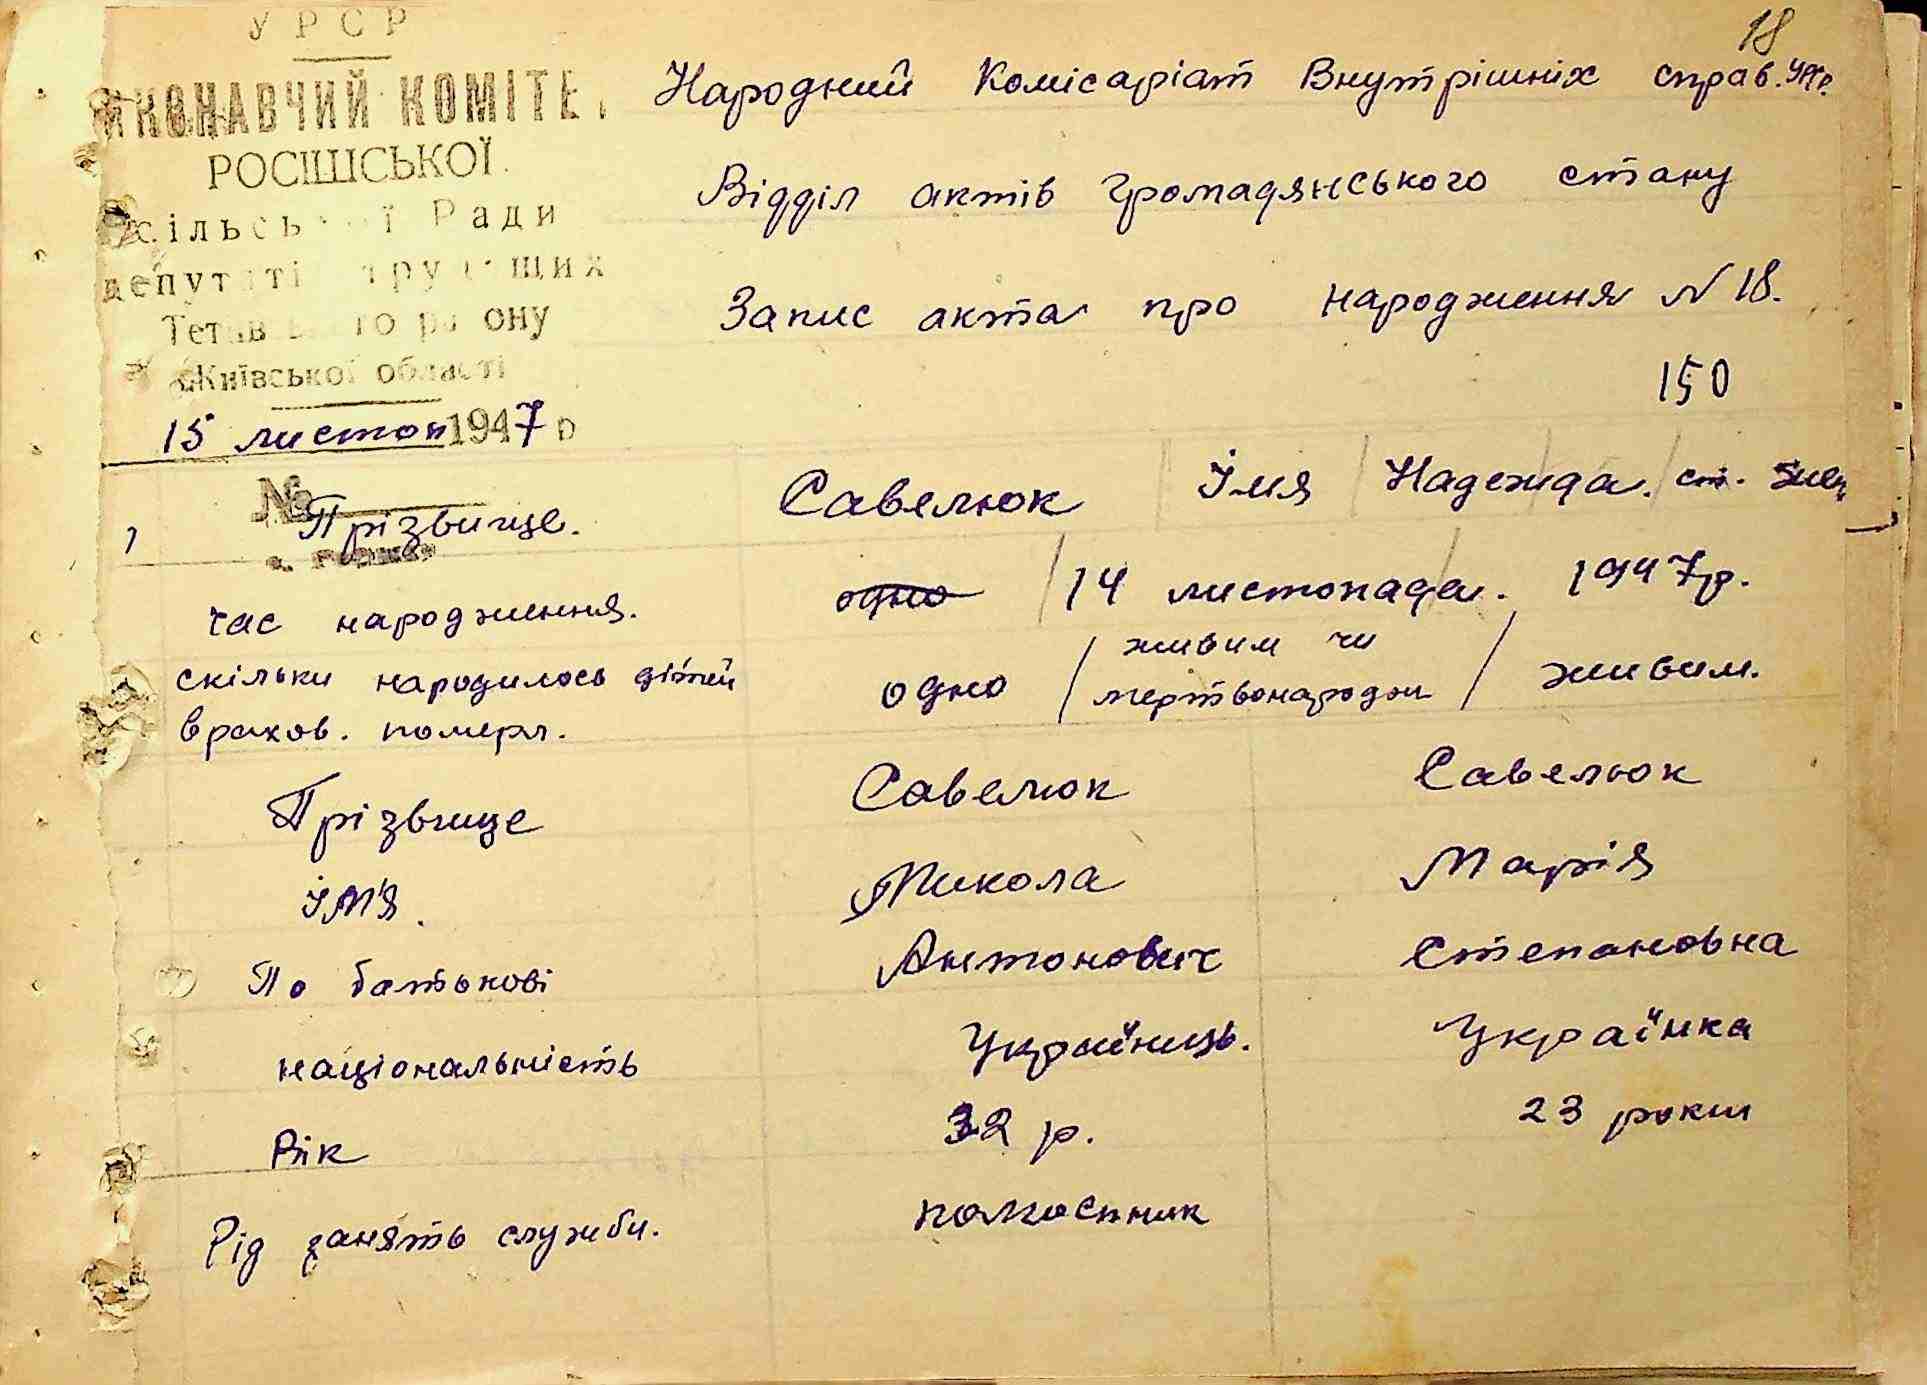 18
УРСР
ИКОНАВЧИЙ КОМІТЕ
РОСІШСЬКОЇ
сільсь ї Ради
депут ті тру щих
Тет в го р ону
Київської області
15 листоп 1947 р
№
Народний Комісаріат Внутрішніх справ. УРСР.
Відділ актів громадянського стану
Запис акта про народження N 18.
150
1 Прізвище. Савелюк Імя Надежда. ст. жен
час народження. одно 14 листопада. 1947р.
скільки народилось дітей одно живим чи живим.
враков. померл. мертвонародж
Прізвище Савелюк Савелюк
Ім'я. Микола Марія
По батькові Антонович Степановна
національність Українець. Українка
Вік 32 р. 23 роки
Рід занять служби. колгоспник